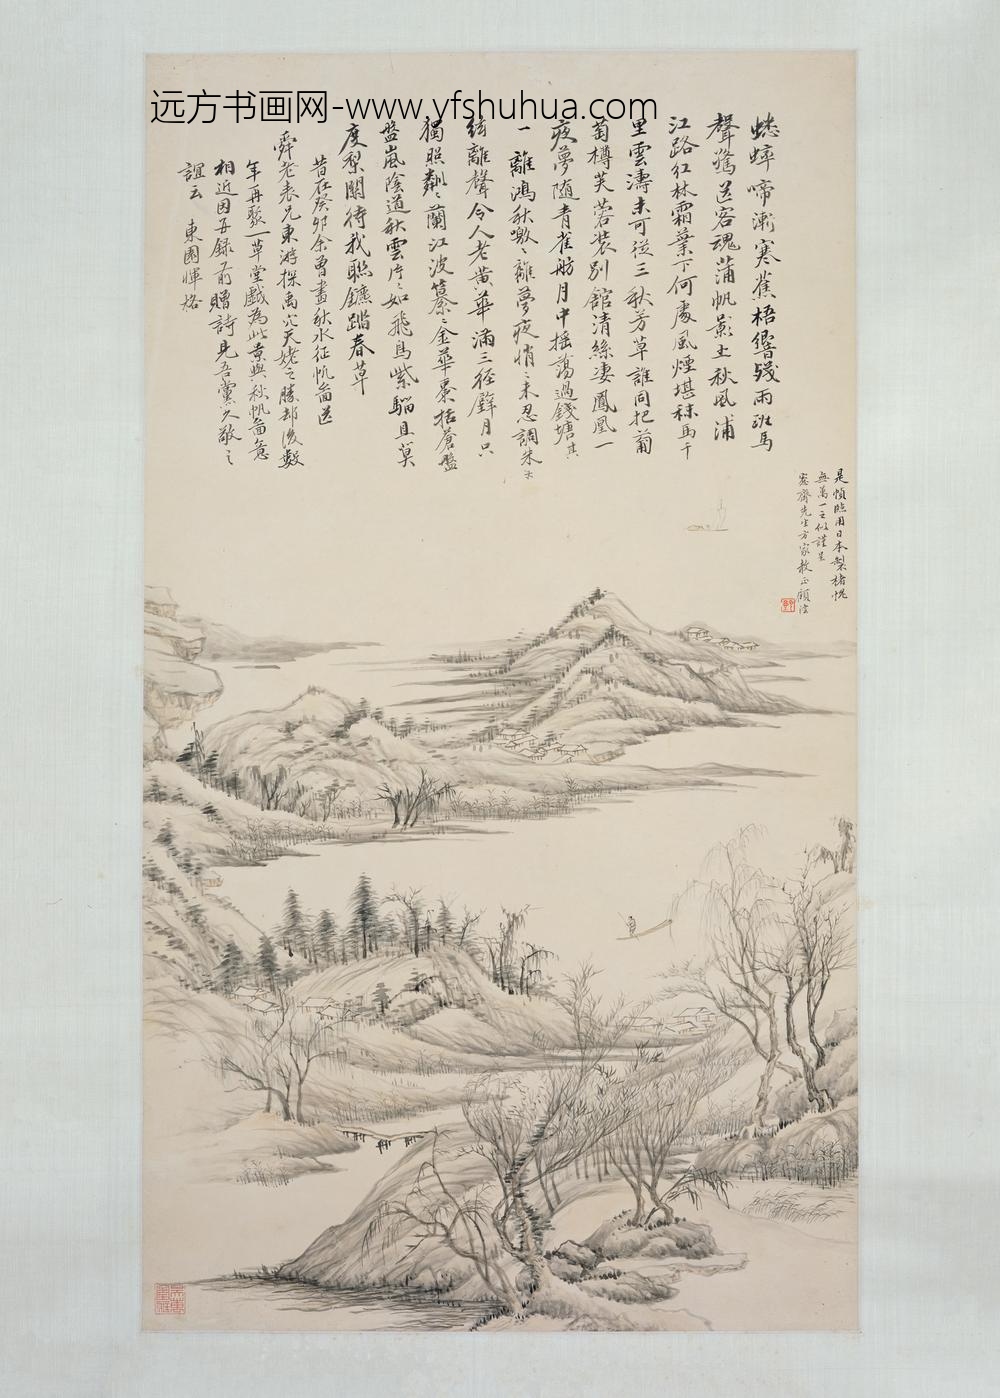 远方书画网-www.yfshuhua.com
蟋蟀啼漸寒蕉梧響殘雨班馬
聲驕送客魂蒲帆影上秋風浦
江路紅林霜葉下何處風煙堪秣馬千
里雲濤未可從三秋芳草誰同把葡
萄樽芙蓉裝別館清絲凄鳳凰一
夜夢隨青雀舫月中搖蕩過錢塘其
一離鴻秋嗷〻離夢夜悄〻未忍調朱
絃離聲令人老黃華滿三徑辟月只
獨照粼〻蘭江波篆〻金華棗括蒼盤
盤嵐陰道秋雲片〻如飛鳥紫騮且莫
度梨關待我聯鑣踏春草
昔在癸卯余曾畫秋水征帆圖送
舜老表兄東游探禹穴天姥之勝却後數
年再聚一草堂戲為此景與秋帆圖意
相近因再錄前贈詩見吾黨久敬之
誼云 東園惲格
是幀臨用日本製楮恍
無萬一之似謹呈
愙齋先生方家教正顧澐